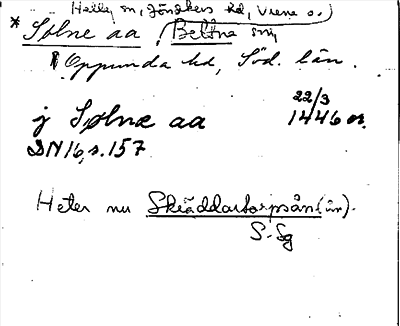 Halla sn, Jönåkers hd,
* Sølne aa, Bettna sn,
Oppunda hd, Söd. län.
j Sølnæ aa 22/3 1446 or.
DN 16, s. 157
Heter nu Skräddartorpsån (ån).
S. Sg